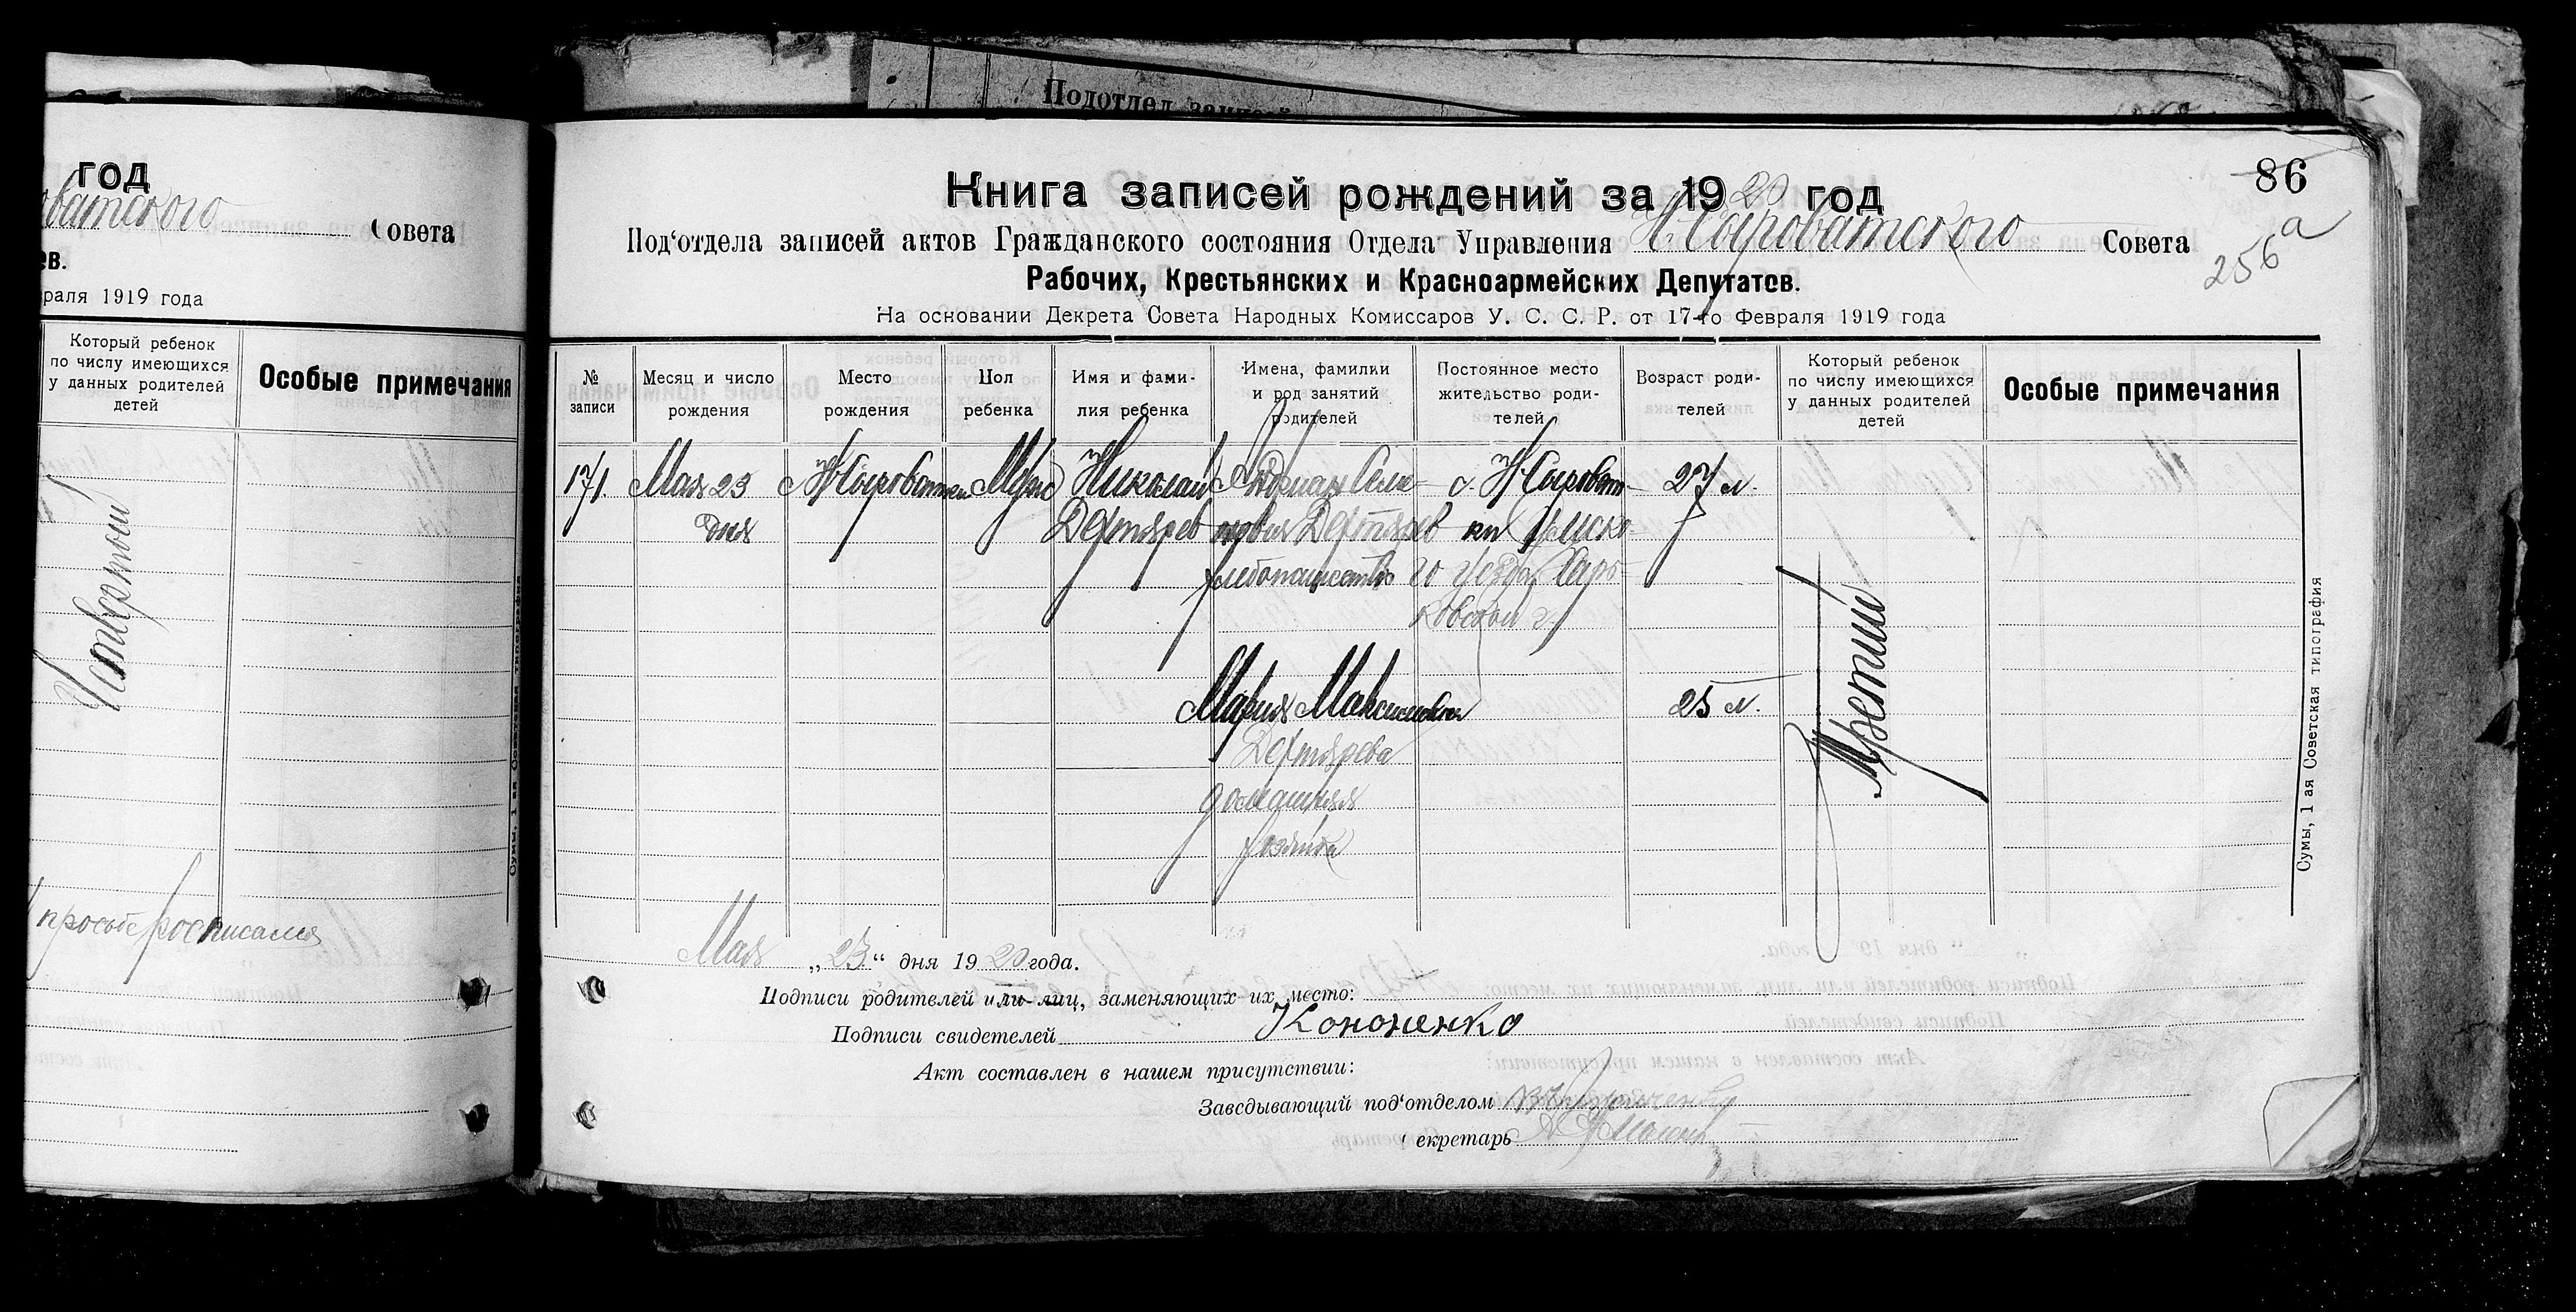 Подотдел записей
год
оватского Совета
ев.
раля 1919 года
Который ребенок
по числу имеющихся
у данных родителей
детей
Особые примечания
Четвертый
просьбе росписался
86
256 а
Книга записей рождений за 1920 год
Под‘отдела записей актов Гражданского состояния Отдела Управления Н Сыроватского Совета
Рабочих, Крестьянских и Красноармейских Депутатов.
На основании Декрета Совета Народных Комиссаров У. С. С. Р. от 17-го Февраля 1919 года
№
записи
Месяц и число
рождения
Место
рождения
Пол
ребенка
Имя и фами-
лия ребенка
Имена, фамилии
и род занятий
родителей
Постоянное место
жительство роди-
телей
Возраст роди-
телей
Который ребенок
по числу имеющихся
у данных родителей
детей
Особые примечания
171.
Мая 23
дня
Н Сыроватка
Муж
Николай
Дехтярев
Дехтярев
хлебопашество
с. Н Сыроват-
ки Сумско-
го уезда Харь-
ковской г.
27 л.
Мария Максимовна
Дехтярева
домашняя
хозяйка
25 л.
Третий
Мая „23“ дня 1920 года.
Подписи родителей или лиц, заменяющих их место:
Подписи свидетелей Кононенко
Акт составлен в нашем присутствии:
Заведывающий под‘отделом
екретарь
Сумы, 1 ая Советская типография
Сумы, 1 ая Советская типография